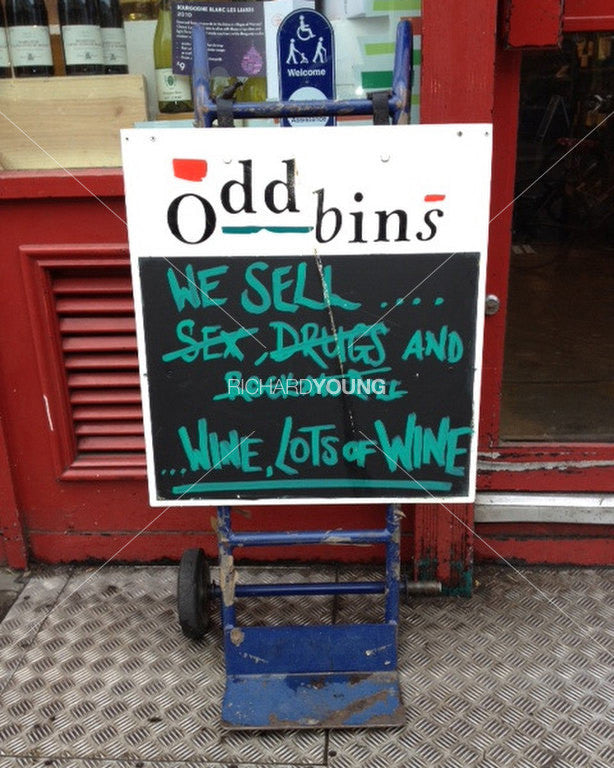 BOURGOGNE BLANC LES LIARDS
2010
£9
Welcome
Assistance
Oddbins
WE SELL ....
SEX, DRUGS AND
ROCK N ROLL
RICHARDYOUNG
...WINE, LOTS OF WINE